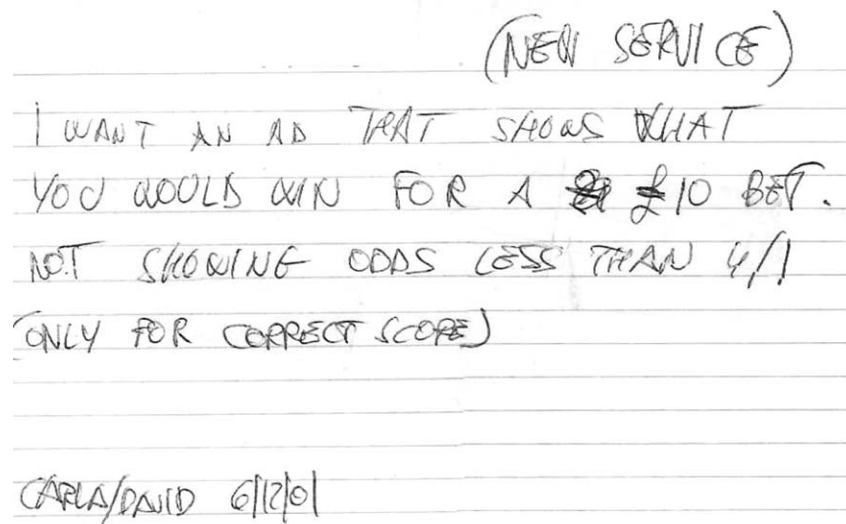 (NEW SERVICE)
I WANT AN AD THAT SHOWS WHAT
YOU WOULD WIN FOR A £10 BET.
NOT SHOWING ODDS LESS THAN 4/1
(ONLY FOR CORRECT SCORE)
CARLA/DAVID 6/12/01